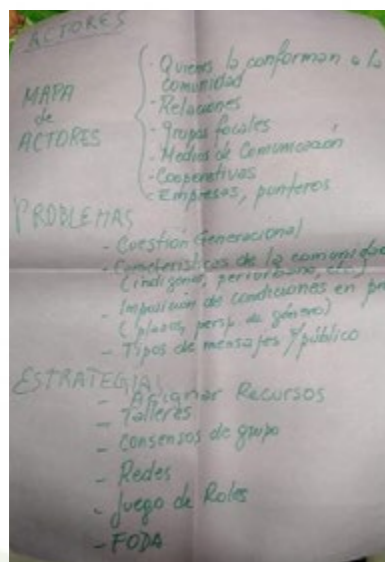 ACTORES
MAPA de ACTORES
- Quienes la conforman a la comunidad
- Relaciones
- grupos focales
- Medios de Comunicación
- Cooperativas
- Empresas, punteros
PROBLEMAS
- Cuestión Generacional
- Características de la comunidad
(indígena, periurbano, etc)
- Imposición de condiciones en
(plazos, persp. de género)
- Tipos de mensajes y público
ESTRATEGIAS
- Asignar Recursos
- Talleres
- Consensos de grupo
- Redes
- Juego de Roles
- FODA